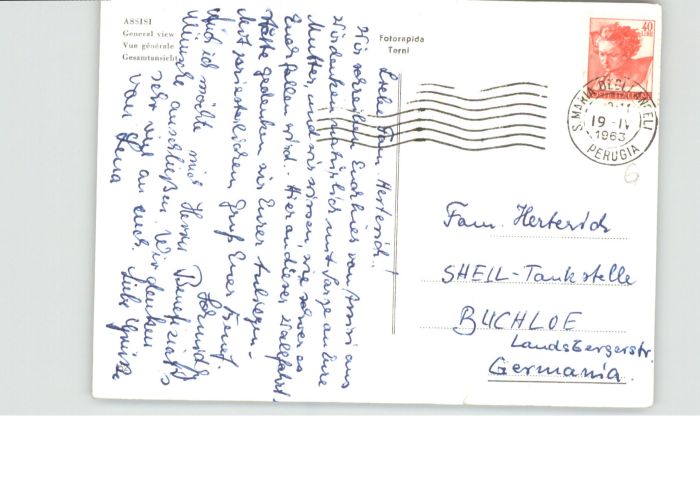 ASSISI
General view
Vue générale
Gesamtansicht
Fotorapida
Terni
40
LIRE
S. MARIA DEGLI ANGELI
19-IV
1963
PERUGIA
6
Liebe Fam. Herterich!
Wir schreiben Euch hier von Assisi aus
Wir denken natürlich mit Sorge an Eure
Mutter, und wir wissen, wie schwer es
Euch fallen wird. Hier an dieser Wallfahrt
stätte gedenken wir Eurer Anliegen.
Mit priesterlichem Gruß Euer Benef.
Schmid
Auch ich möchte mich Herrn Benefiziats
Wünsche anschließen. Wir denken
sehr viel an euch. Liebe Grüße
von Lena
Fam. Herterich
SHELL-Tankstelle
BUCHLOE
Landsbergerstr.
Germania.